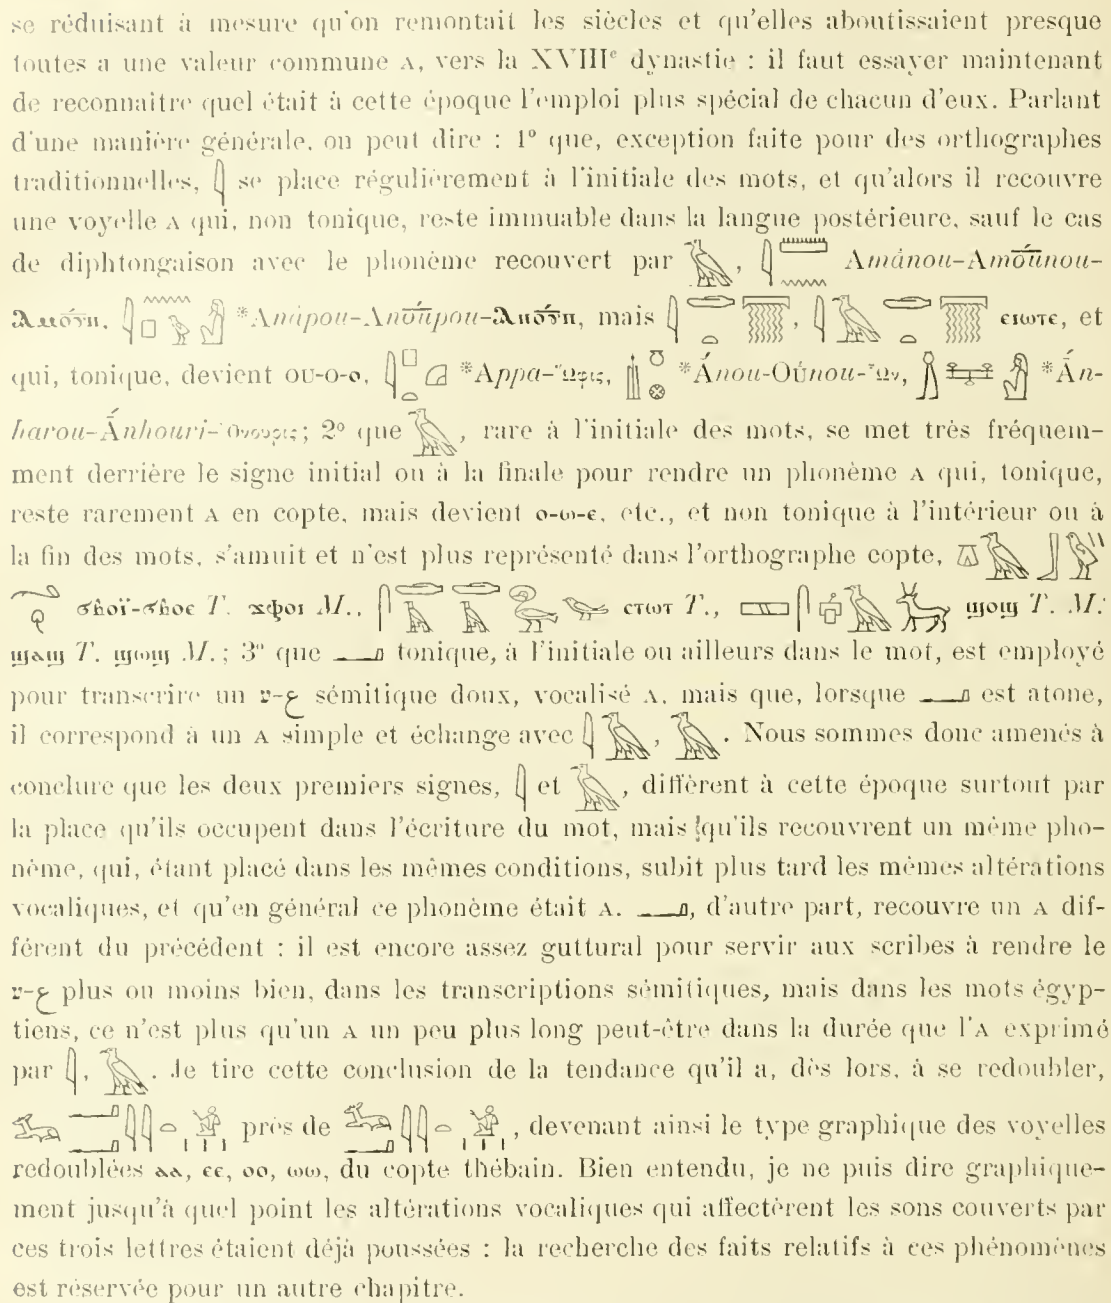 se réduisant à mesure qu'on remontait les siècles et qu'elles aboutissaient presque
toutes a une valeur commune A, vers la XVIIIᵉ dynastie : il faut essayer maintenant
de reconnaitre quel était à cette époque l'emploi plus spécial de chacun d'eux. Parlant
d'une manière générale, on peut dire : 1º que, exception faite pour des orthographes
traditionnelles, 𓇋 se place régulièrement à l'initiale des mots, et qu'alors il recouvre
une voyelle A qui, non tonique, reste immuable dans la langue postérieure, sauf le cas
de diphtongaison avec le phonème recouvert par 𓄿, 𓇋𓏠𓈖 Amânou-Amoúnou-
ⲁⲙⲟⲩⲛ, 𓇋𓈖𓊪𓅱 *Anápou-Anoúpou-ⲁⲛⲟⲩⲡ, mais ⲉⲓⲱⲧⲉ, et
qui, tonique, devient ou-o-ⲟ, *Appa-Ὦφις, *Ánou-Oúnou-Ὦν, *Án-
harou-Ánhouri-Ὀνουρις; 2º que 𓄿, rare à l'initiale des mots, se met très fréquem-
ment derrière le signe initial ou à la finale pour rendre un phonème A qui, tonique,
reste rarement A en copte, mais devient ⲟ-ⲱ-ⲉ, etc., et non tonique à l'intérieur ou à
la fin des mots, s'amuit et n'est plus représenté dans l'orthographe copte,
ϭⲃⲟⲓ̈-ϭⲃⲟⲉ T. ϫⲫⲟⲓ M., ⲉⲧⲱⲧ T., ϣⲟϣ T. M.
ϣⲁϣ T. ϣⲱϣ M.; 3º que 𓂝 tonique, à l'initiale ou ailleurs dans le mot, est employé
pour transcrire un ע-ع sémitique doux, vocalisé A, mais que, lorsque 𓂝 est atone,
il correspond à un A simple et échange avec 𓇋𓄿, 𓄿. Nous sommes donc amenés à
conclure que les deux premiers signes, 𓇋 et 𓄿, diffèrent à cette époque surtout par
la place qu'ils occupent dans l'écriture du mot, mais qu'ils recouvrent un même pho-
nème, qui, étant placé dans les mêmes conditions, subit plus tard les mêmes altérations
vocaliques, et qu'en général ce phonème était A. 𓂝, d'autre part, recouvre un A dif-
férent du précédent : il est encore assez guttural pour servir aux scribes à rendre le
ע-ع plus ou moins bien, dans les transcriptions sémitiques, mais dans les mots égyp-
tiens, ce n'est plus qu'un A un peu plus long peut-être dans la durée que l'A exprimé
par 𓇋, 𓄿. Je tire cette conclusion de la tendance qu'il a, dès lors, à se redoubler,
près de , devenant ainsi le type graphique des voyelles
redoublées ⲁⲁ, ⲉⲉ, ⲟⲟ, ⲱⲱ, du copte thébain. Bien entendu, je ne puis dire graphique-
ment jusqu'à quel point les altérations vocaliques qui affectèrent les sons couverts par
ces trois lettres étaient déjà poussées : la recherche des faits relatifs à ces phénomènes
est réservée pour un autre chapitre.